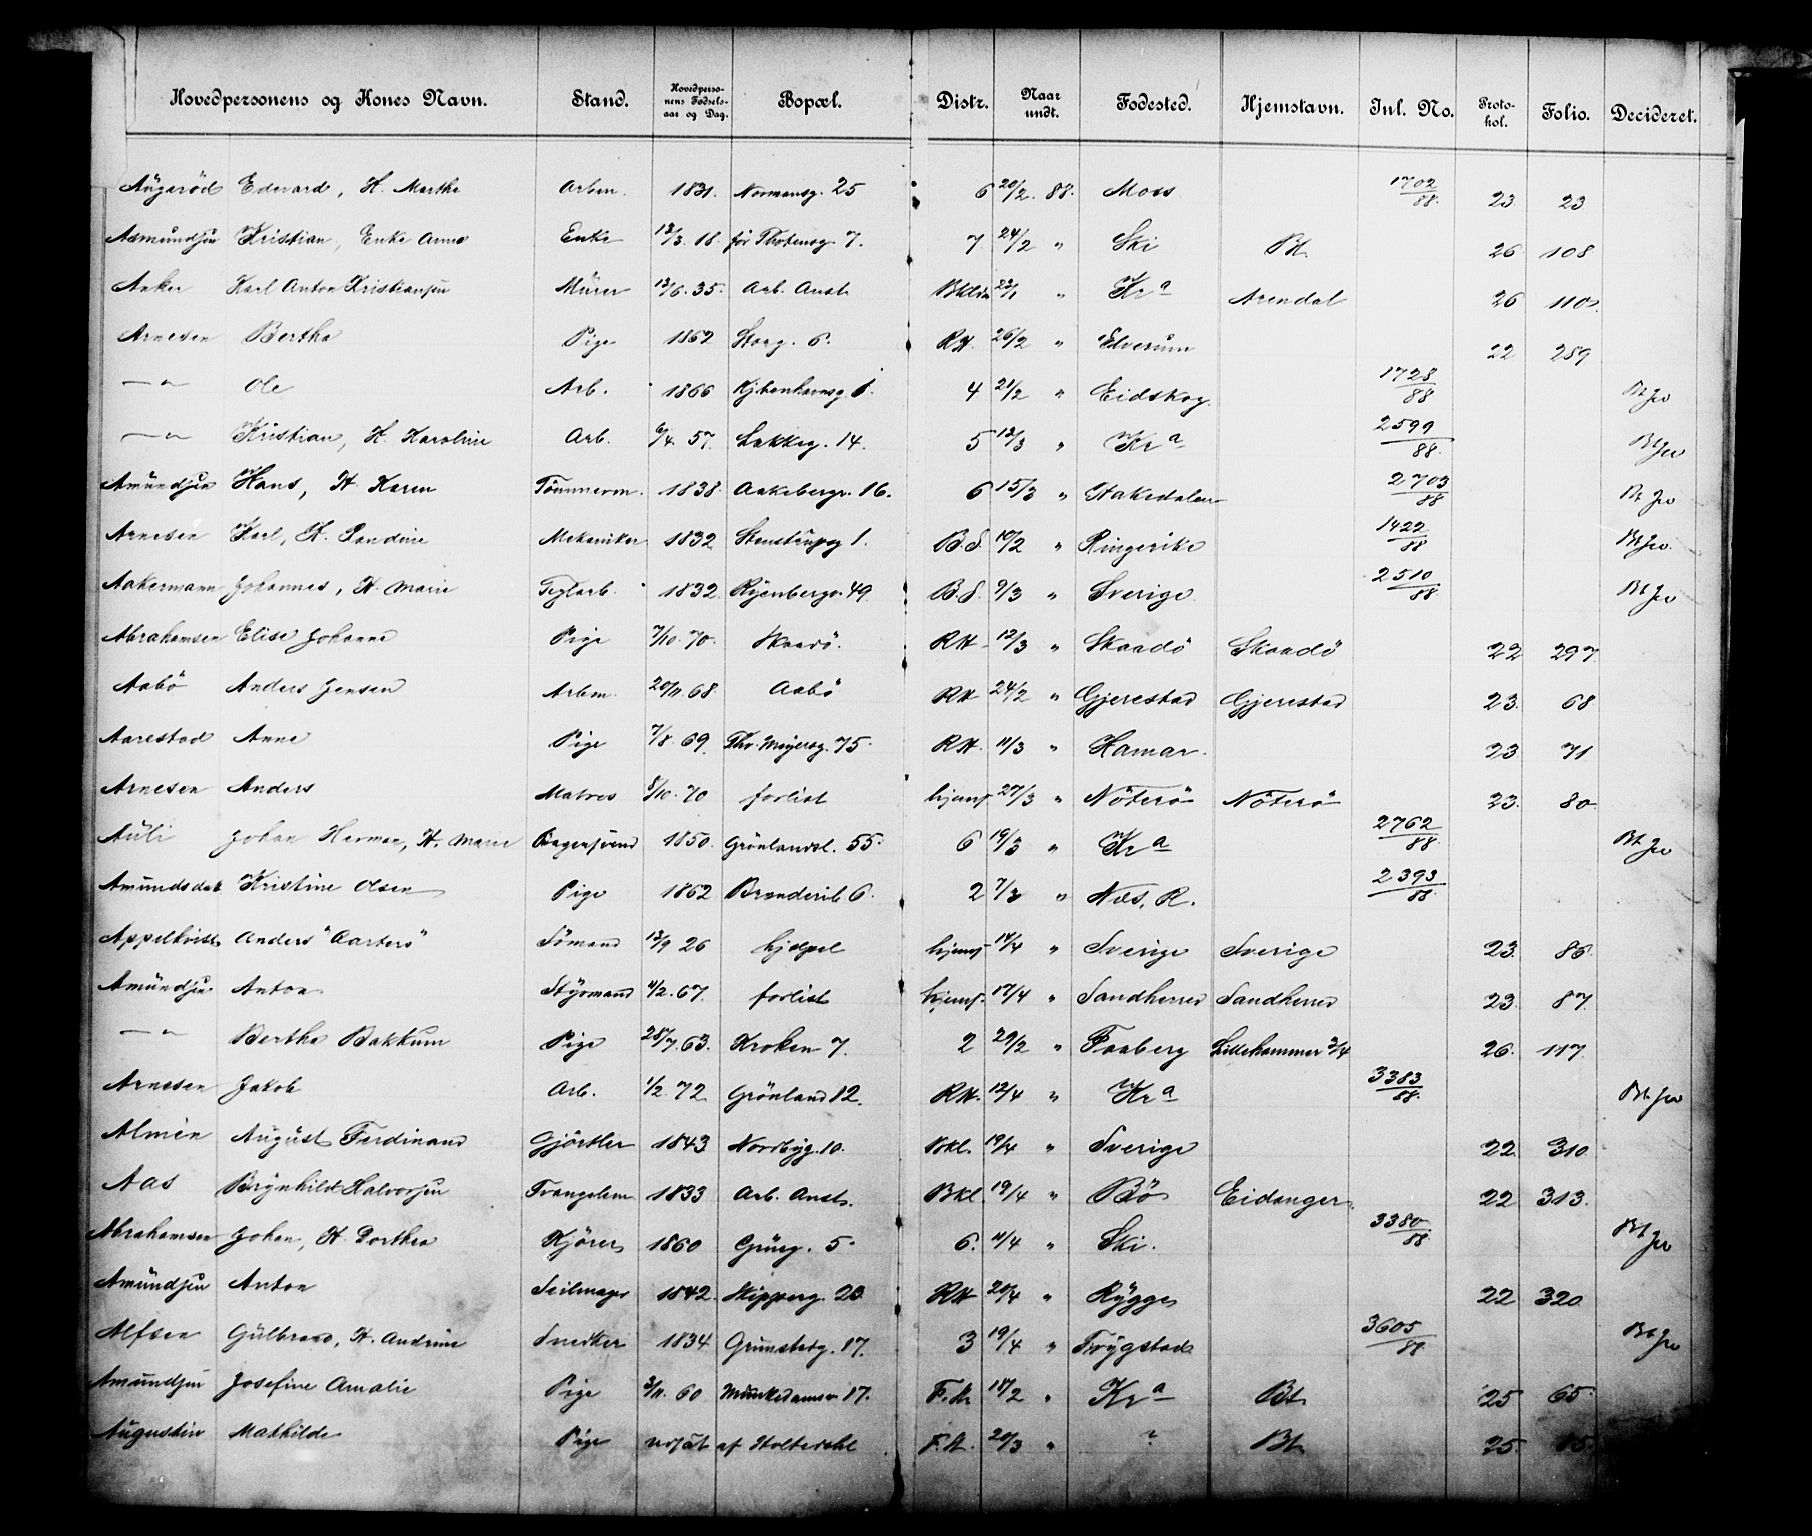 Hovedpersonens og Kones Navn. Stand. Hovedpersonens Fødselsaar og Dag. Bopæl. Distr. Naar undt. Fødested. Hjemstavn. Inl. No. Protokol. Folio. Decideret.
Augarød Edevard, H. Marthe Arbm. 1831. Normansg. 25 6 20/2. 88. Moss 1702/88. 23. 23
Asmundsen Kristian, Enke Anne Enke 13/3. 18. for Thotensg. 7. 7 24/2 " Ski Bt. 26 108
Anker Karl Anton Kristiansen Mürer 13/6. 35. Arb. Anst. 22/1 " Kra Arendal 26 110.
Arnesen Berthe Pige 1862 Storg. 6. RH. 26/2 " Elverum 22 289
— " Ole Arb. 1866 Kjbenhavnsg. 1. 4 21/2 " Eidskog. 1728/88 Bt Jw
— " Kristian, H. Karoline Arb. 6/4. 57. Lakkeg. 14. 5 12/3 " Kra 2599/88. Bt Jw
Amundsen Hans, H. Karen Tömmerm. 1838. Aakebergv. 16. 6 15/3 " Hakedalen 2703/88 Bt Jw
Arnesen Karl, H. Pandine Mekaniker 1832 Stenstrupsg 1. B.S. 10/2 " Ringerike 1422/88 Bt Jw.
Aakermann Johannes, H. Marie Teglarb. 1832 Ryenbergv. 49 B.S. 9/3 " Sverige 2510/88 Bt Jw
Abrahamsen Elise Johanne Pige 7/10. 70. Skaadö. RH 12/3 " Skaadö Skaadö 22 297
Aabö Anders Jensen Arbm. 20/11. 68. Aabö RH 24/2 " Gjerestad Gjerestad 23. 68
Aarestad Anne Pige 7/8. 69. Thv. Meyersg. 75. RH. 11/3 " Hamar. 23. 71
Arnesen Anders Matros 8/10. 70 forlist hjemf. 27/3 " Nöterö Nöterö 23. 80.
Auli Johan Herman, H. Marie 1850. Grönlandsl. 55. 6 19/3 " Kra 2762/88. Bt Jw
Amundsdat. Kristine Olsen Pige 1862 Brenderib 6. 2 7/3 " Næs, R. 2393/88.
Appelkvist Anders "Aarters" Sömand 13/9 26 hjelpel hjemf. 14/4 " Sverige Sverige 23. 86.
Amundsen Anton Styrmand 11/2. 67. forlist hjemf. 17/4 " Sandherred Sandherred 23. 87.
— " Berthe Bakkum Pige 28/7. 63. Kroken 7. 2 29/2 " Faaberg Lillehammer 3/4 26. 117.
Arnesen Jakob Arb. 1/2. 72 Grönland 12. RH. 12/4 " Kra 3383/88. Bt Jw
Almén August Ferdinand Gjörtler 1843 Nordbyg. 10. Bkl. 19/4 " Sverige 22. 310.
Aas Brynhild Halvorsen Tvangslem 1833 Arb. Anst. Bkl. 19/4 " Bö Eidanger. 22 313.
Abrahamsen Johan, H. Dorthea Kjörer 1860 Grüng. 5. 6. 11/4 " Ski. 3380/88 Bt Jw
Amundsen Anton Seilmager 1842. Skipperg. 20. RH 20/4 " Rygge 22 320.
Alfsen Gulbrand, H. Andrine Snedker 1834 Grünsbeg. 17. 3 19/4 " Trygstad 3605/88. Bt Jw
Amundsen Josefine Amalie Pige 3/11. 60 Munkedamsv 17. F.A. 18/2 " Kra Bt. 25 65.
Augustin Mathilde Pige af Holterdahl F.A. 20/3 " ? Bt. 25.